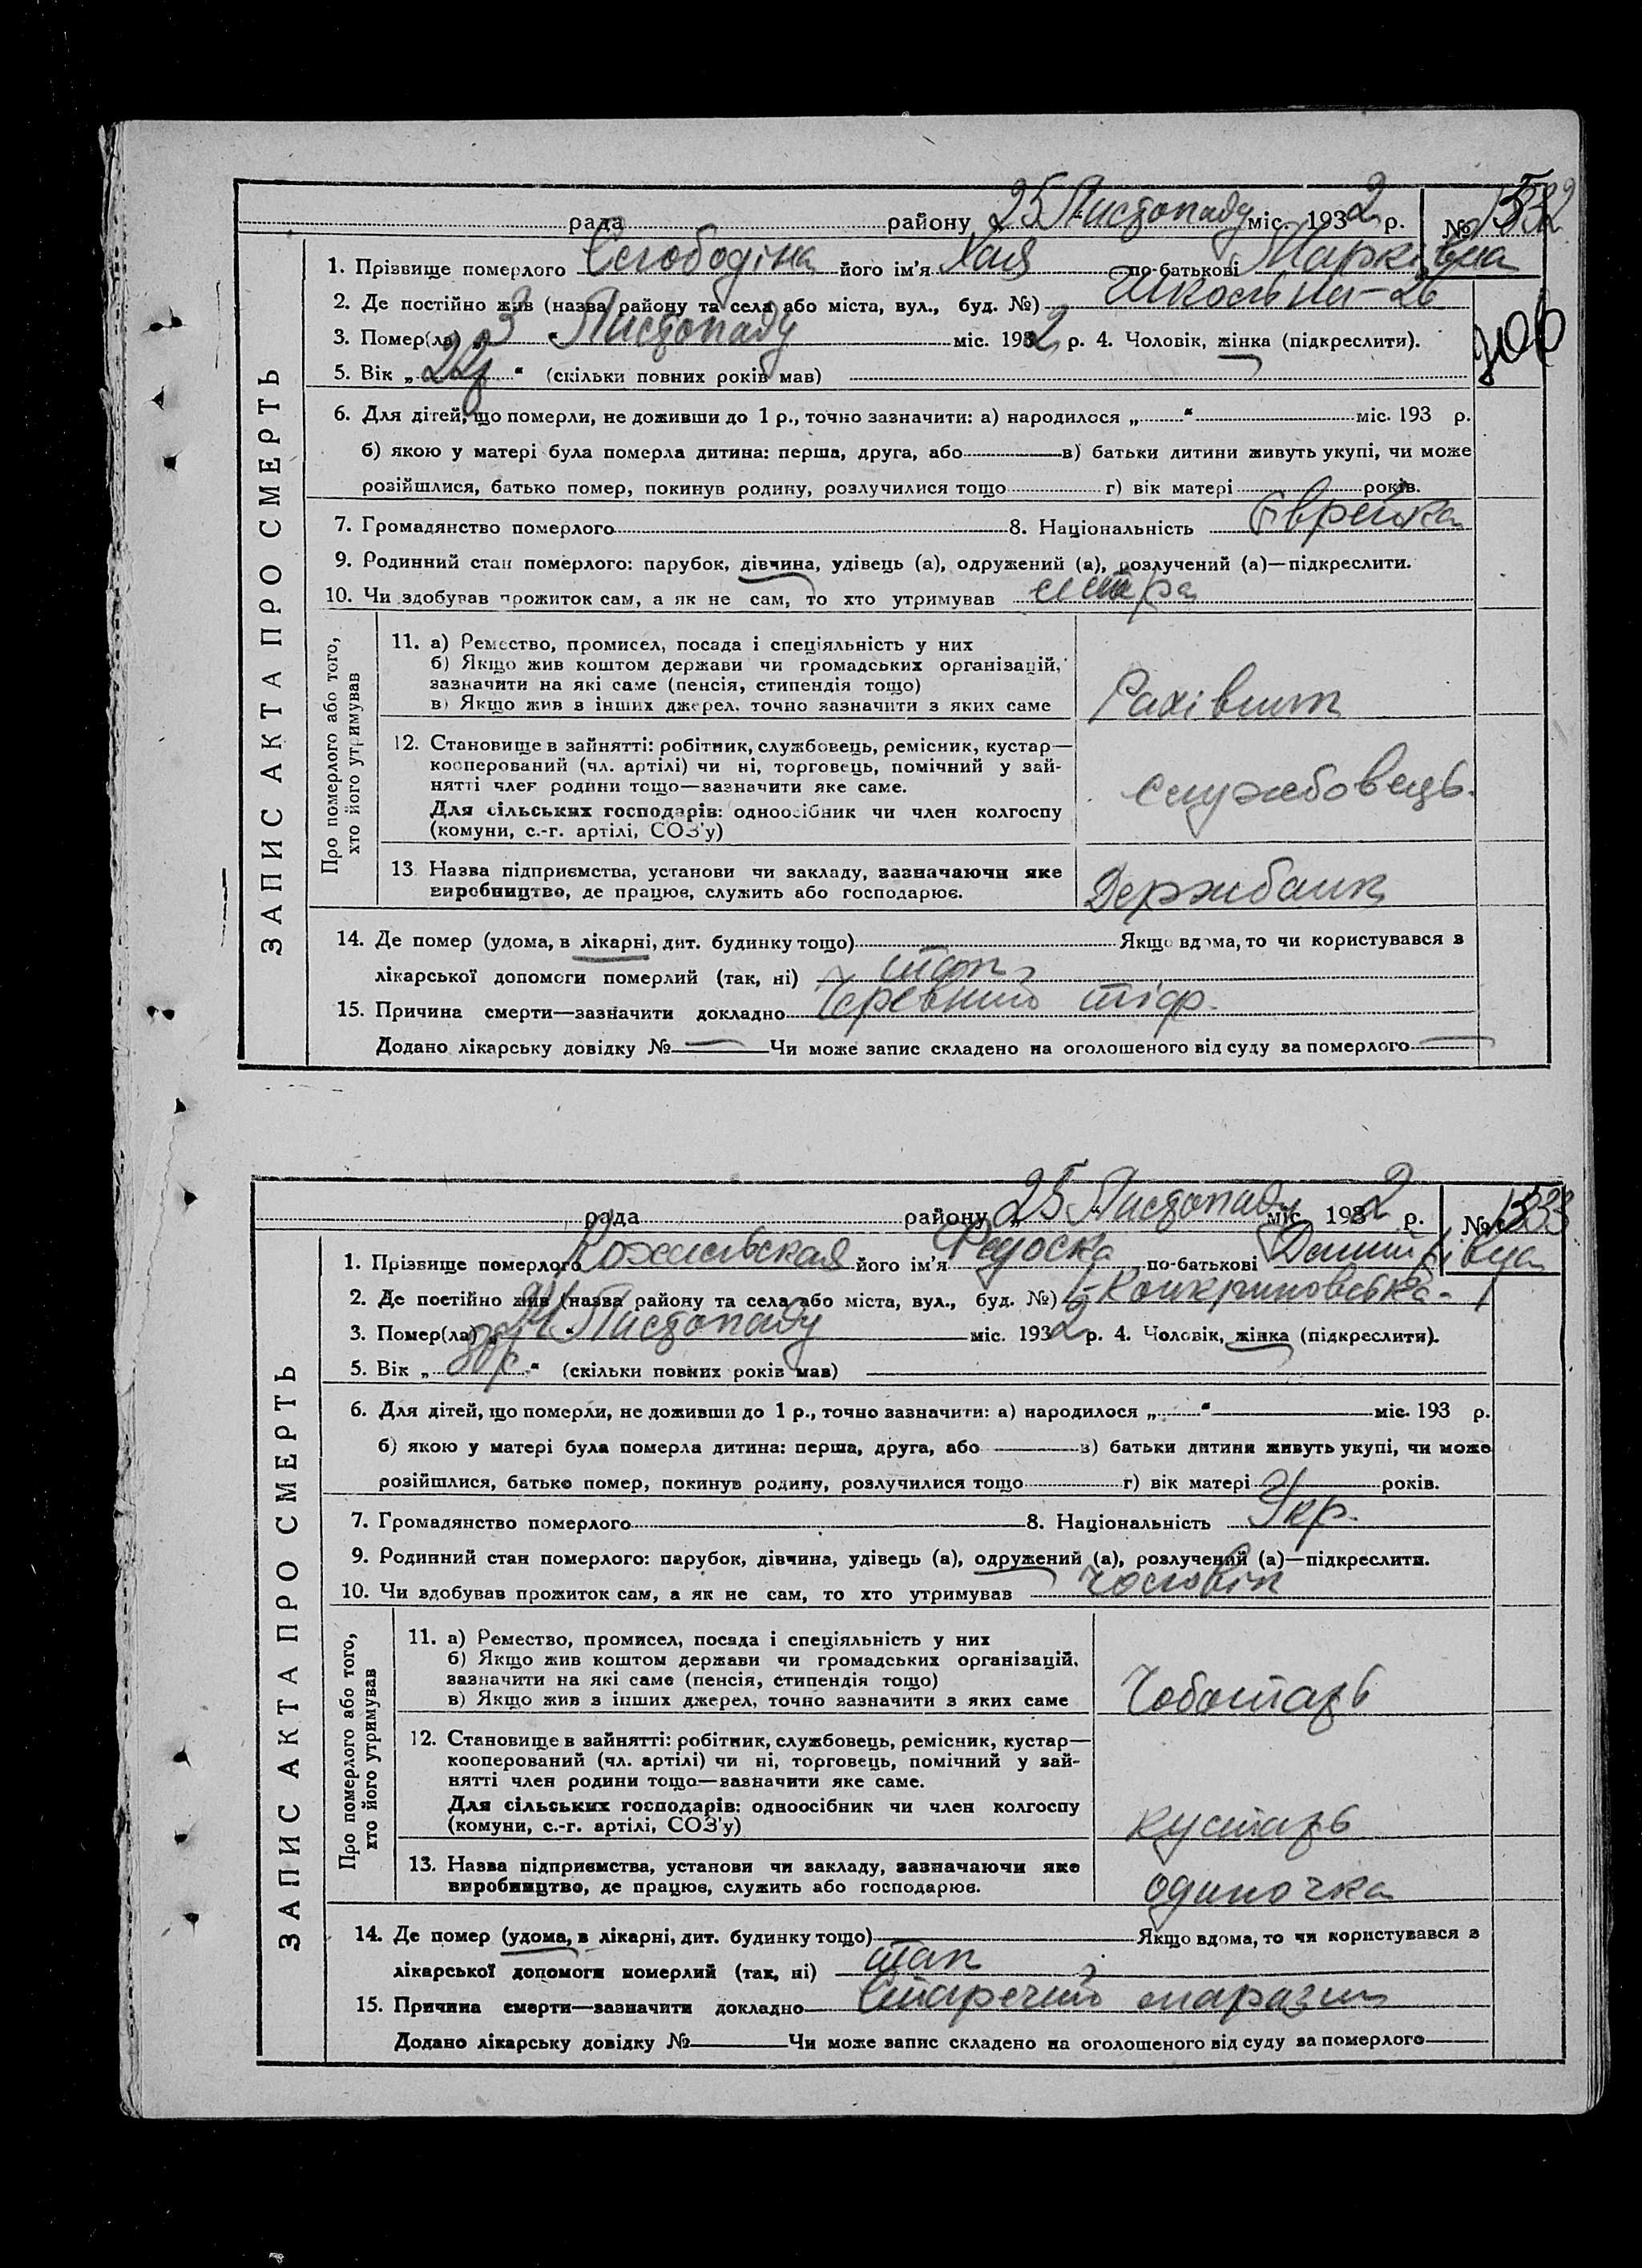 рада району 25 Листопаду міс. 1932 р. № 1532
1. Прізвище померлого Слободіна його ім'я Хая по-батькові Марківна
2. Де постійно жив (назва району та села або міста, вул., буд. №) Шкільна - 26
3. Помер(ла) „3“ Листопаду міс. 1932 р. 4. Чоловік, жінка (підкреслити).
5. Вік „22р“ (скільки повних років мав)
6. Для дітей, що померли, не доживши до 1 р., точно зазначити: а) народилося „ “ міс. 193 р.
б) якою у матері була померла дитина: перша, друга, або в) батьки дитини живуть укупі, чи може
розійшлися, батько помер, покинув родину, розлучилися тощо г) вік матері років.
7. Громадянство померлого 8. Національність Єврейка
9. Родинний стан померлого: парубок, дівчина, удівець (а), одружений (а), розлучений (а)—підкреслити.
10. Чи здобував прожиток сам, а як не сам, то хто утримував сестра
ЗАПИС АКТА ПРО СМЕРТЬ
Про померлого або того,
хто його утримував
11. а) Ремество, промисел, посада і спеціяльність у них
б) Якщо жив коштом держави чи громадських організацій,
зазначити на які саме (пенсія, стипендія тощо)
в) Якщо жив з інших джерел, точно зазначити з яких саме
Рахівник
12. Становище в зайнятті: робітник, службовець, ремісник, кустар—
кооперований (чл. артілі) чи ні, торговець, помічний у зай-
нятті член родини тощо—зазначити яке саме.
Для сільських господарів: одноосібник чи член колгоспу
(комуни, с.-г. артілі, СОЗ'у)
службовець.
13. Назва підприємства, установи чи закладу, зазначаючи яке
виробництво, де працює, служить або господарює.
Держбанк
14. Де помер (удома, в лікарні, дит. будинку тощо) Якщо вдома, то чи користувався з
лікарської допомоги померлий (так, ні) так
15. Причина смерти—зазначити докладно Черевний тіф.
Додано лікарську довідку № — Чи може запис складено на оголошеного від суду за померлого —
рада району „25“ Листопаду міс. 1932 р. № 1533
1. Прізвище померлого його ім'я Федоска по-батькові
2. Де постійно жив (назва району та села або міста, вул., буд. №)
3. Помер(ла) „24“ Листопаду міс. 1932 р. 4. Чоловік, жінка (підкреслити).
5. Вік „ “ (скільки повних років мав)
6. Для дітей, що померли, не доживши до 1 р., точно зазначити: а) народилося „ “ міс. 193 р.
б) якою у матері була померла дитина: перша, друга, або в) батьки дитини живуть укупі, чи може
розійшлися, батько помер, покинув родину, розлучилися тощо г) вік матері років.
7. Громадянство померлого 8. Національність Укр.
9. Родинний стан померлого: парубок, дівчина, удівець (а), одружений (а), розлучений (а)—підкреслити.
10. Чи здобував прожиток сам, а як не сам, то хто утримував чоловік
ЗАПИС АКТА ПРО СМЕРТЬ
Про померлого або того,
хто його утримував
11. а) Ремество, промисел, посада і спеціяльність у них
б) Якщо жив коштом держави чи громадських організацій,
зазначити на які саме (пенсія, стипендія тощо)
в) Якщо жив з інших джерел, точно зазначити з яких саме
Чоботарь
12. Становище в зайнятті: робітник, службовець, ремісник, кустар—
кооперований (чл. артілі) чи ні, торговець, помічний у зай-
нятті член родини тощо—зазначити яке саме.
Для сільських господарів: одноосібник чи член колгоспу
(комуни, с.-г. артілі, СОЗ'у)
кустарь
13. Назва підприємства, установи чи закладу, зазначаючи яке
виробництво, де працює, служить або господарює.
одиночка
14. Де помер (удома, в лікарні, дит. будинку тощо) Якщо вдома, то чи користувався з
лікарської допомоги померлий (так, ні) так
15. Причина смерти—зазначити докладно Старечий маразм
Додано лікарську довідку № Чи може запис складено на оголошеного від суду за померлого